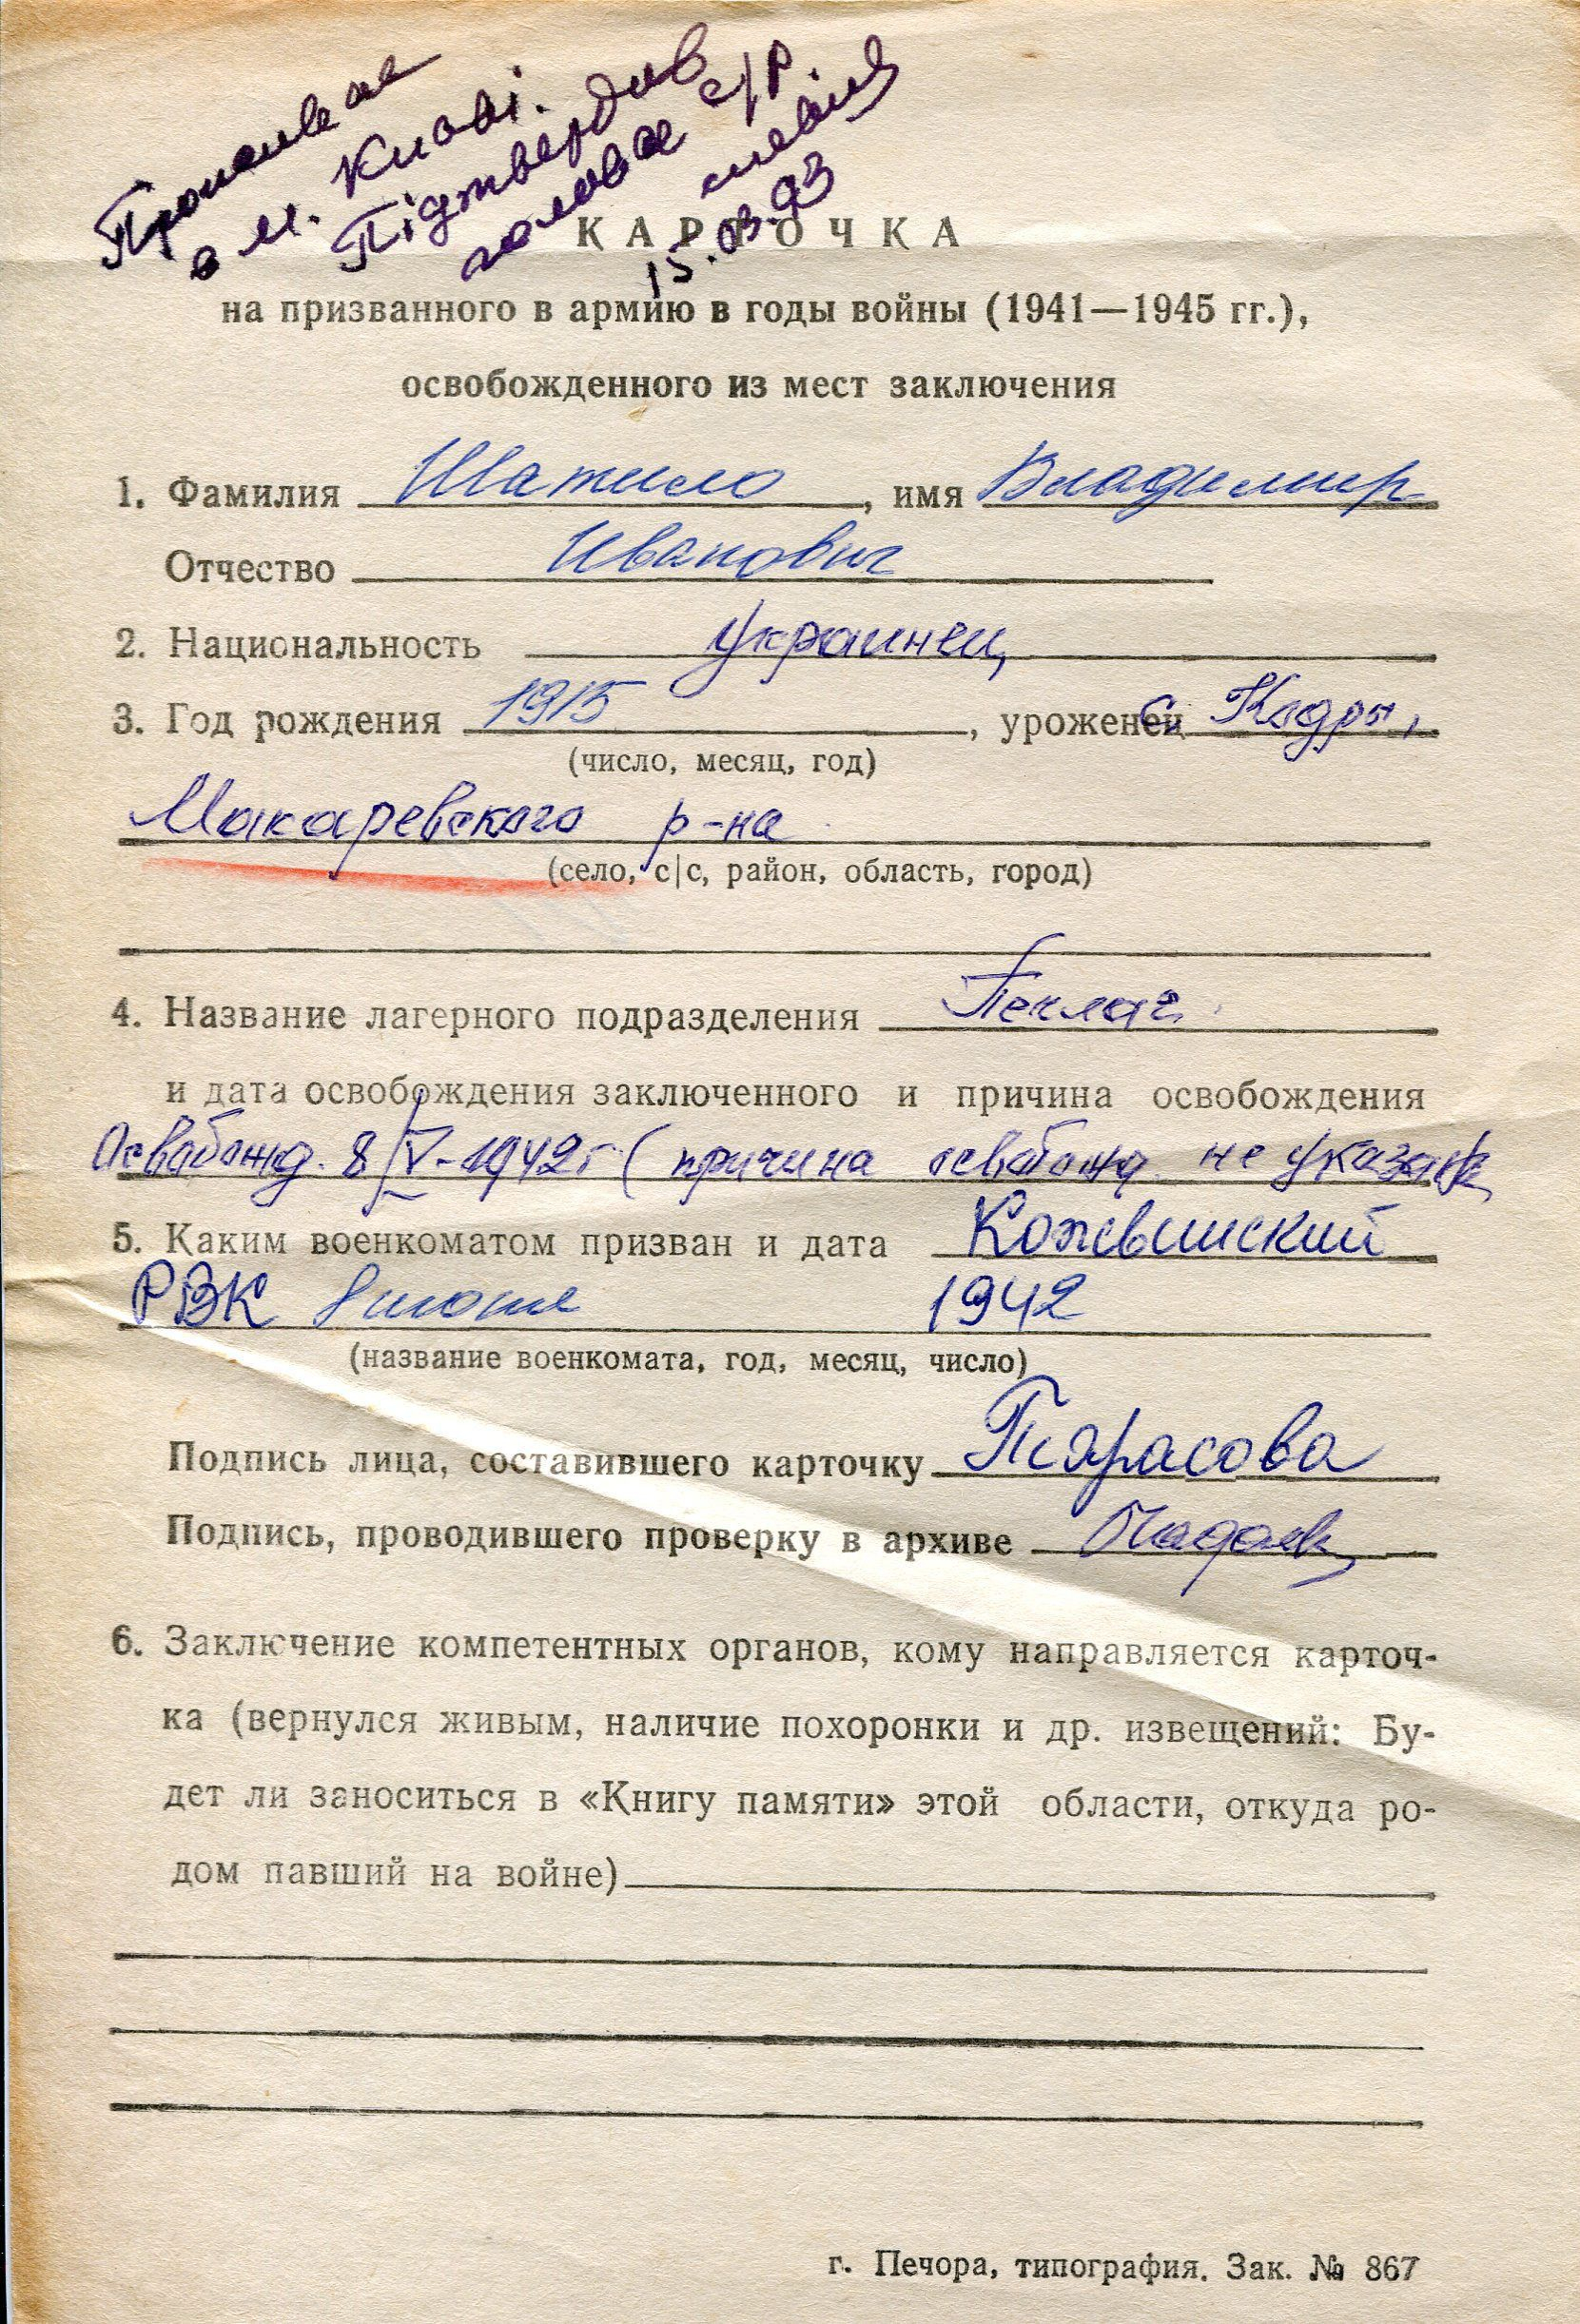 Проживає
в м. Києві.
Підтвердив
голова с/р.
15.03.93
КАРТОЧКА
на призванного в армию в годы войны (1941—1945 гг.),
освобожденного из мест заключения
1. Фамилия Шатило, имя Владимир
Отчество Иванович
2. Национальность Украинец
3. Год рождения 1915, уроженец с. Кодры,
(число, месяц, год)
Макаревского р-на
(село, с|с, район, область, город)
4. Название лагерного подразделения Печлаг
и дата освобождения заключенного и причина освобождения
Освобожд. 8/V-1942г (причина освобожд. не указана
5. Каким военкоматом призван и дата Кожвинский
РВК 8 июня 1942
(название военкомата, год, месяц, число)
Подпись лица, составившего карточку Тарасова
Подпись, проводившего проверку в архиве
6. Заключение компетентных органов, кому направляется карточ-
ка (вернулся живым, наличие похоронки и др. извещений: Бу-
дет ли заноситься в «Книгу памяти» этой области, откуда ро-
дом павший на войне)
г. Печора, типография. Зак. № 867